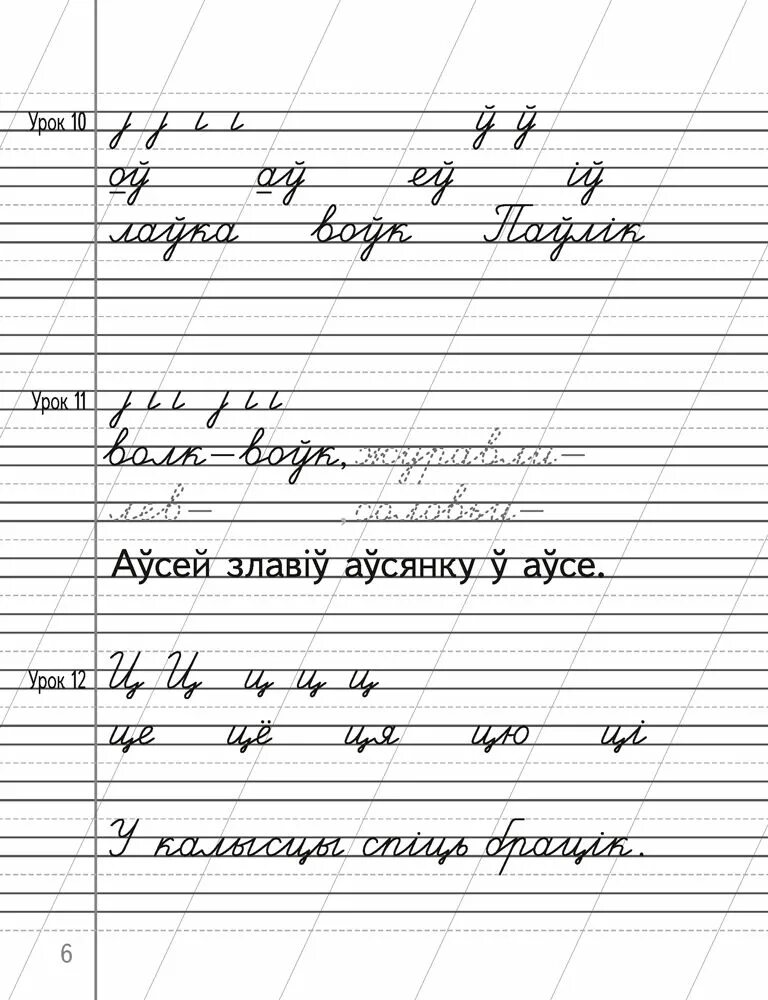 Урок 10 ў ў
оў аў еў іў
лаўка воўк Паўлік
Урок 11
волк–воўк, журавли–
лев– , соловьи–
Аўсей злавіў аўсянку ў аўсе.
Урок 12 Ц Ц ц ц ц
це цё ця цю ці
У калысцы спіць брацік.
6